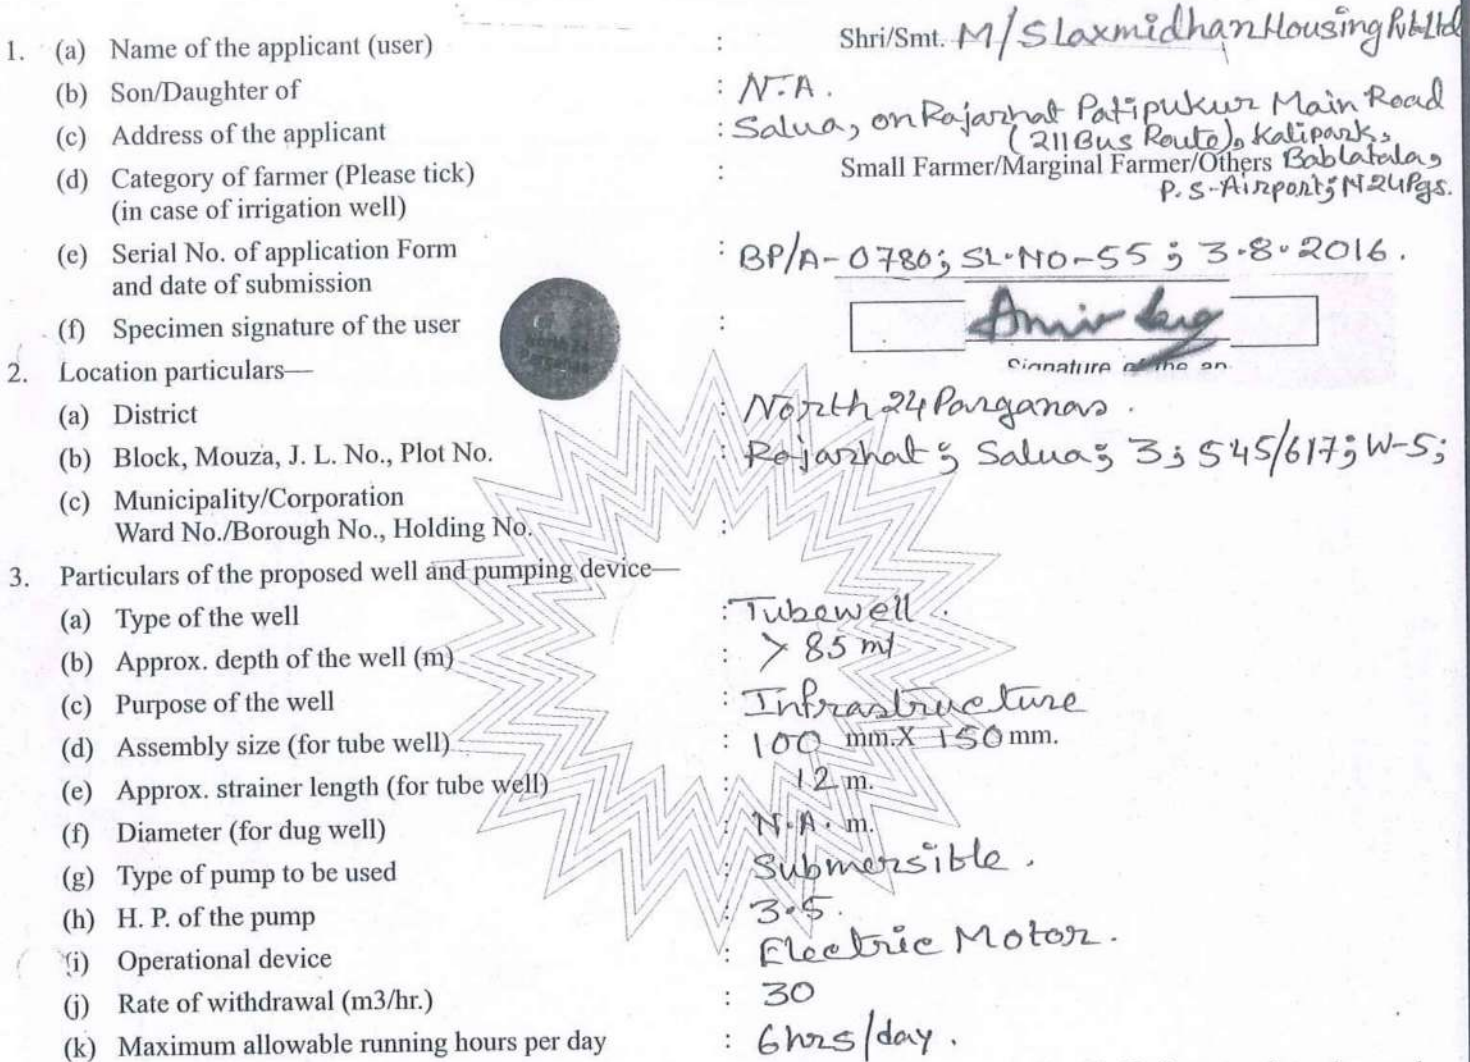 1. (a) Name of the applicant (user) : Shri/Smt. M/S Laxmidhan Housing Pvt. Ltd
(b) Son/Daughter of : N.A.
(c) Address of the applicant : Salua, on Rajarhat Patipukur Main Road
(211 Bus Route), Kalipark,
(d) Category of farmer (Please tick) : Small Farmer/Marginal Farmer/Others Bablatala,
(in case of irrigation well) P.S-Airport; N 24 Pgs.
(e) Serial No. of application Form : BP/A-0780; SL.NO-55; 3.8.2016.
and date of submission
(f) Specimen signature of the user :
Signature of the an
2. Location particulars—
(a) District : North 24 Parganas.
(b) Block, Mouza, J. L. No., Plot No. : Rajarhat; Salua; 3; 545/617; W-5;
(c) Municipality/Corporation
Ward No./Borough No., Holding No. :
3. Particulars of the proposed well and pumping device—
(a) Type of the well : Tubewell.
(b) Approx. depth of the well (m) : > 85 mt
(c) Purpose of the well : Infrastructure
(d) Assembly size (for tube well) : 100 mm.X 150 mm.
(e) Approx. strainer length (for tube well) : 12 m.
(f) Diameter (for dug well) : N.A. m.
(g) Type of pump to be used : Submersible.
(h) H. P. of the pump : 3.5.
(i) Operational device : Electric Motor.
(j) Rate of withdrawal (m3/hr.) : 30
(k) Maximum allowable running hours per day : 6hrs/day.